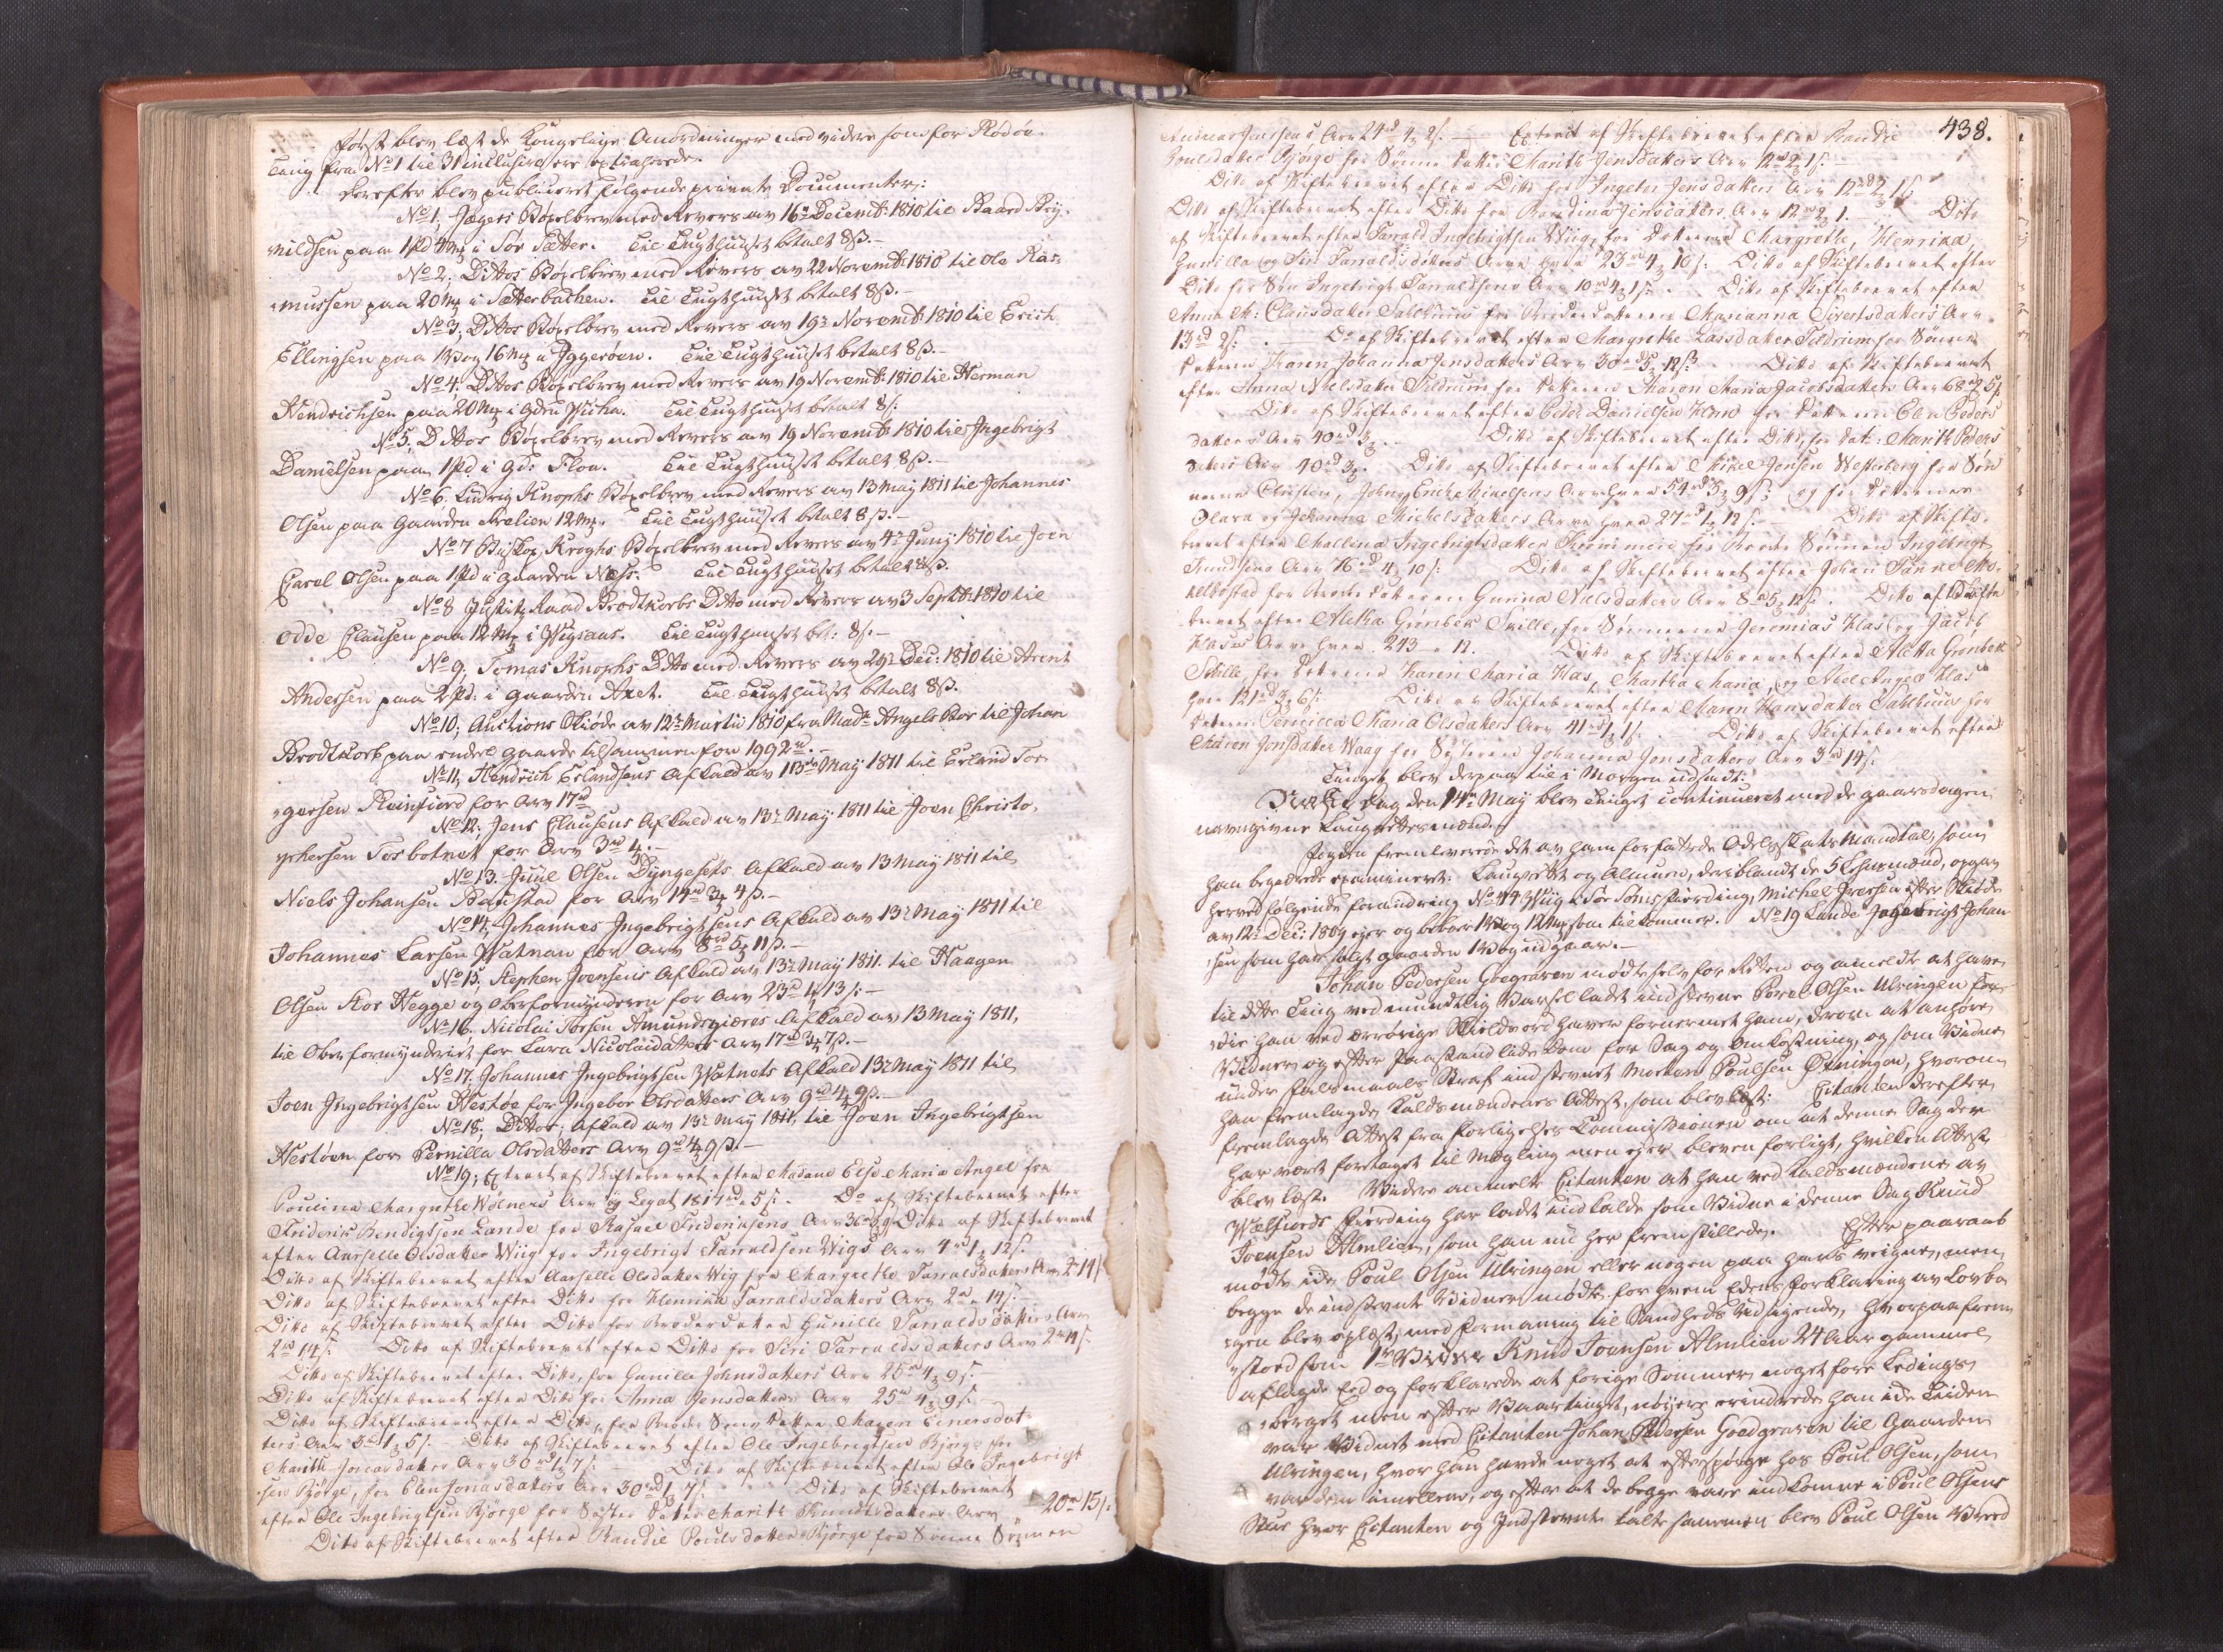 først blev læst de Kongelige Anordninger med videre som for Rødøe
Ting fra No 1 til 31 inclusive ere extraherede.
Derefter blev publiceret følgende private Documenter:
No 1, Jægers Bøxelbrev med Revers av 16de Decemb: 1810 til Baard Bry-
nildsen paa 1 Pd i Sør Sætter. Til Tugthuuset betalt 8 s.
No 2, Dittos Bøxelbrev med Revers av 22 Novemb: 1810 til Ole Ras-
mussen paa 20 mk i Sætterbachen. Til Tugthuuset betalt 8 s.
No 3, Dittos Bøxelbrev med Revers av 19de Novemb: 1810 til Erich
Ellingsen paa 16 mk i Yggerøen. Til Tugthuuset betalt 8 s.
No 4, Dittos Bøxelbrev med Revers av 19 Novemb: 1810 til Herman
Hendrichsen paa 20 mk i Til Tugthuuset betalt 8 s.
No 5, Dittos Bøxelbrev med Revers av 19 Novemb: 1810 til Ingebrigt
Danielsen paa 1 Pd i Gd: Floa. Til Tugthuuset betalt 8 s.
No 6, Ludvig Knophs Bøxelbrev med Revers av 13 May 1811 til Johannes
Olsen paa Gaarden 12 mk. Til Tugthuuset betalt 8 s.
No 7 Biskop Kroghs Bøxelbrev med Revers av 4de Juny 1810 til Joen
Carel Olsen paa 1 Pd i Gaarden Næss. Til Tugthuuset betalt 8 s.
No 8 Justitz Raad Brodtkorbs Ditto med Revers av 3 Septb: 1810 til
Odde Clausen paa 12 mk i Til Tugthuuset bet: 8 s.
No 9, Tomas Knophs Ditto med Revers av 29de Dec: 1810 til Arent
Andersen paa 2 Pd: i Gaarden Til Tugthuuset betalt 8 s.
No 10, Auctions Skiøde av 12te Martii 1810 fra Mad: Angels Boe til Johan
Brodtkorb paa endel Gaarde tilsammen for 1992 rd.
No 11, Hendrich Erlandsens Afkald av 13de May 1811 til Erland Tor-
gersen Reinfiord for Arv 17 rd
No 12, Jens Clausens Afkald av 13de May 1811 til Joen Christo-
phersen Torbotnet for Arv 3 rd
No 13. Juul Olsen Dyngesets Afkald av 13 May 1811 til
Niels Johansen for Arv 4 s.
No 14, Johannes Ingebrigtsens Afkald av 13de May 1811 til
Johannes Larsen Watnan for Arv 8 rd 5 11 s.
No 15, Stephen Joensens Afkald av 13de May 1811. til Haagen
Olsen Stor Hegge og Oberformynderen for Arv 23 rd 13 s.
No 16. Nicolai Amundsgiæres Afkald av 13 May 1811,
til Oberformynderiet for Lara Nicolaidatters Arv 17 rd
No 17. Johannes Ingebrigtsen Watnets Afkald 13de May 1811 til
Joen Ingebrigtsen Hestøe for Ingebor Olsdatters Arv 9 rd 4 9 s.
No 18, Dittos, Afkald av 13de May 1811, til Joen Ingebrigtsen
Hestøen for Pernilla Olsdatters Arv 9 rd 4 9 s.
No 19, Extract af Skiftebrevet efter Madame Else Maria Angel for
Poulina Margrethe Wolners Arv og Legat 5 s. Do af Skiftebrevet efter
Friderich Bendigtsen Lande for Friderichsens Arv Ditto af Skiftebrevet
efter Aarselle Olsdatter Wiig for Ingebrigt Taraldsen Wigs Arv 4 rd 1 12 s.
Ditto af Skiftebrevet efter Aarselle Olsdatter Wig for Margrethe Taraldsdatters Arv 2 14 s
Ditto af Skiftebrevet efter Ditto for Henrika Taraldsdatters Arv 2 14 s.
Ditto af Skiftebrevet efter Ditto for Broderdatter Gunille Taraldsdatters Arv
2 rd 14 s. Ditto af Skiftebrevet efter Ditto for Siri Taraldsdatters Arv 2 14 s.
Ditto af Skiftebrevet efter Ditto, for Gunilla Johnsdatters Arv 25 rd 4 9 s.
Ditto af Skiftebrevet efter Ditto for Anna Jensdatters Arv 25 rd 4 9 s.
Ditto af Skiftebrevet efter Ditto, for Broder Søns datter Maren Einersdat-
ters Arv 3 1 5 s. Ditto af Skiftebrevet efter Ole Ingebrigtsen Bjørge for
Marith Jonasdatters Arv 30 rd 1 7 s. Ditto af Skiftebrevet efter Ole Ingebrigt-
sen Bjørge, for Elen Jonasdatters Arv 30 rd 1 7 s. Ditto af Skiftebrevet
efter Ole Ingebrigtsen Bjørge for Søster datter Marith Knudsdatters Arv 20 rd 15 s.
Ditto af Skiftebrevet efter Randie Poulsdatter Bjørge for Sønne Sønnen
438.
Jensens Arv 24 rd 4 2 s. Extract af Skiftebrevet efter Randie
Poulsdatter Bjørge for Sønne datter Marith Jensdatters Arv 12 rd 2 1 s.
Ditto af Skiftebrevet efter Ditto for Ingeber Jensdatters Arv 12 rd 2 1 s.
Ditto af Skiftebrevet efter Ditto for Jensdatters Arv 12 rd 2 1. Ditto
af Skiftebrevet efter Tarald Ingebrigtsen Wiig, for Døttrene Margrethe, Henrika,
Gunilla og Siri Taraldsdatters Arv hver 23 rd 4 10 s. Ditto af Skiftebrevet efter
Ditto for Søn Ingebrigt Taraldsens Arv 1 s. Ditto af Skiftebrevet efter
Anna M: Clausdatter Salhuus for Marianna Sivertsdatters Arv
13 rd 2 s. Do af Skiftebrevet efter Margrethe Larsdatter Tilrum for Sønne
datteren Karen Johanna Jensdatters Arv 30 rd 5 12 s. Ditto af Skiftebrevet
efter Anna Nielsdatter Tilrum for datteren Karen Maria Jacobsdatters Arv
Ditto af Skiftebrevet efter Peder Danielsen for datteren Elen Peders
datters Arv 40 rd 3. Ditto af Skiftebrevet efter Ditto, for dat: Marith Peders
datters Arv 40 rd 3. Ditto af Skiftebrevet efter Mikel Jensen Wetterberg for Søn
nerne Christen, John og Michelsens Arv hver 54 rd 3 9 s. og for Døttrene
Olava og Johanna Michelsdatters Arv hver 27 rd 1 12 s. Ditto af Skifte-
brevet efter Mallena Ingebrigtsdatter for Broder Sønnen Ingebrigt
Arv 16 rd 4 10 s. Ditto af Skiftebrevet efter Johan Tanne
for datteren Gunna Nielsdatters Arv 8 rd 5 12 s. Ditto af Skifte
brevet efter Aletha Grønbek for Sønnerne Jeremias Klas og Jacob
Klases Arv hver 243 12. Ditto af Skiftebrevet efter Aletta Grønbek
for Døttrene Karen Maria Klas, Martha Maria, og Klas
hver 121 rd 3 6 s. Ditto av Skiftebrevet efter Maren Hansdatter Salhuus for
datteren Pernilla Maria Olsdatters Arv 41 rd 1 1 s. Ditto af Skiftebrevet efter
Maren Jonsdatter Waag for Søsteren Johanna Jonsdatters Arv 3 rd 14 s.
Tinget blev derpaa til i Morgen udsadt.
dag den 14de May blev Tinget continueret med de gaarsdagen
navngivne Laugrettesmænd.
Fogden fremleverede det av ham forfattede Odelsskats Mandtal, som
han begiærede examineret. Laugrett og Almuen, deriblandt de 5 Lehnsmænd, opgav
herved følgende forandring No 44 i Sør fierding, Michel Iversen efter Skiøde
av 12te Dec: 1809 ejer og beboer og 12 mk som tilkommer. No 19 Lande Ingebrigt Johan-
sen som har solgt Gaarden udgaar.
Johan Pedersen Goegraven mødte selv for Retten og anmeldte at have
til dette Ting ved mundtlig Varsel ladet indstevne Povel Olsen Ulvingen for-
di han ved ærrørige Skieldsord haver fornermet ham, derom at anhøre
Vidner og efter Paastand lide Dom for Sag og Omkostning, og som Vidne
under falsmaals Straf indstevnet Morten Poulsen Øxningen, hvorom
han fremlagde Kaldsmændenes Attest, som blev læst. Citanten derefter
fremlagde Attest fra Forligelses Commissionen om at denne Sag der
har vært foretaget til Mægling men ej bleven forligt, hvilken Attest
blev læst. Videre anmelte Citanten at han ved Kaldsmændene av
Welfiords fierding har ladet indkalde som Vidne i denne Sag Knud
Joensen Almlien, som han nu her fremstillede. Efter paaraab
mødte ei Poul Olsen Ulvingen eller nogen paa hans veigne, men
begge de indstevnte Vidner mødte for hvem Edens forklaring av Lovbo-
gen blev oplæst, med formaning til Sandheds Udsigende, hvorpaa frem-
stod som 1te Vidne Knud Joensen Almlien 24 Aar gammel
aflagde Eed og forklarede at forige Sommer noget før Ledings
berget men efter Vaartinget, nøyere erindrede han ei Tiden
var Vidnet med Citanten Johan Pedersen Goedgraven til Gaarden
Ulvingen, hvor han havde noget at efterspørge hos Poul Olsen, som
var dem imellem, og efter at de begge vare indkomne i Poul Olsens
Stue hvor Citanten og Indstevnte talte sammen blev Poul Olsen Vreed